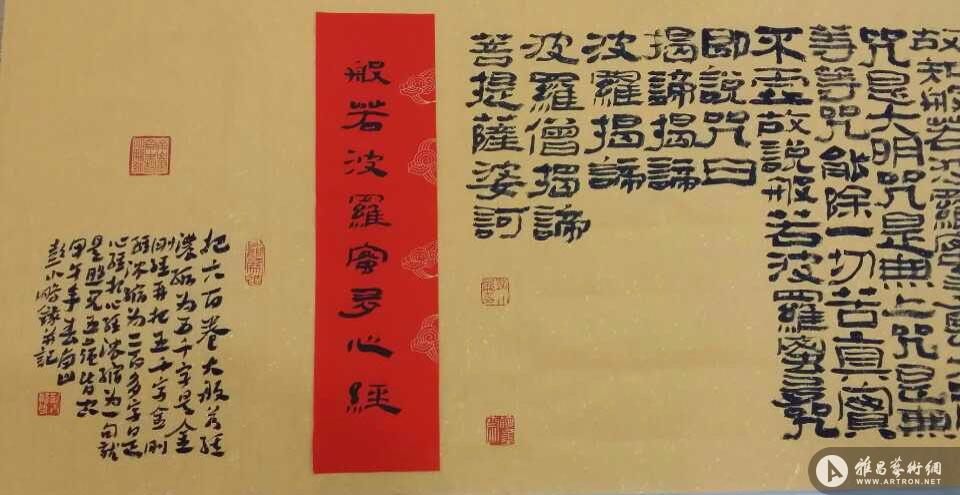 故知般若波羅蜜多
咒是大明咒是無上咒是無
等等咒能除一切苦真實
不虛故說般若波羅蜜多咒
即說咒曰
揭諦揭諦
波羅揭諦
波羅僧揭諦
菩提薩婆訶
般若波羅蜜多心經
把六百卷大般若經
濃縮為五千字是金
剛經再把五千字金剛
經濃縮為二百多字是
心經把心經濃縮為一句就
是照見五蘊皆空
甲午年春
彭小 錄並記
雅昌藝術網
WWW.ARTRON.NET